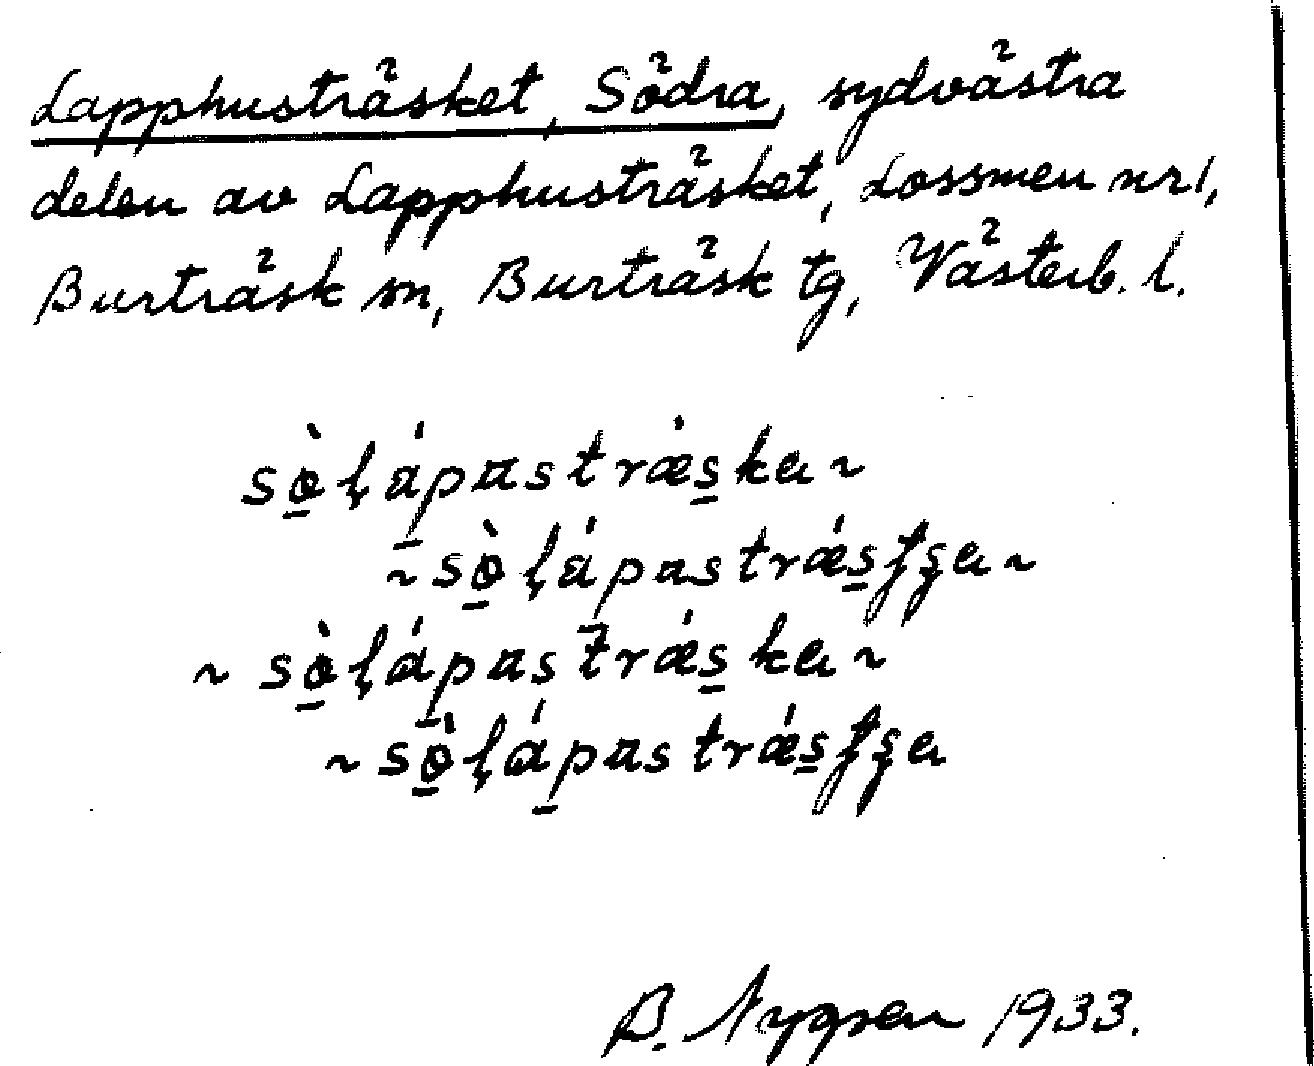 Lapphusträsket, Södra, sydvästra
delen av Lapphusträsket, Lossmen nr 1,
Burträsk sn, Burträsk tg, Västerb. l.
sò̱ḷápastræ̀s̱ka ~
~ sò̱ḷápastrǽs̱ʄʂa ~
~ sò̱ḷápastrǽs̱ka ~
~ sò̱ḷápastrǽs̱ʄʂa
B. 1933.